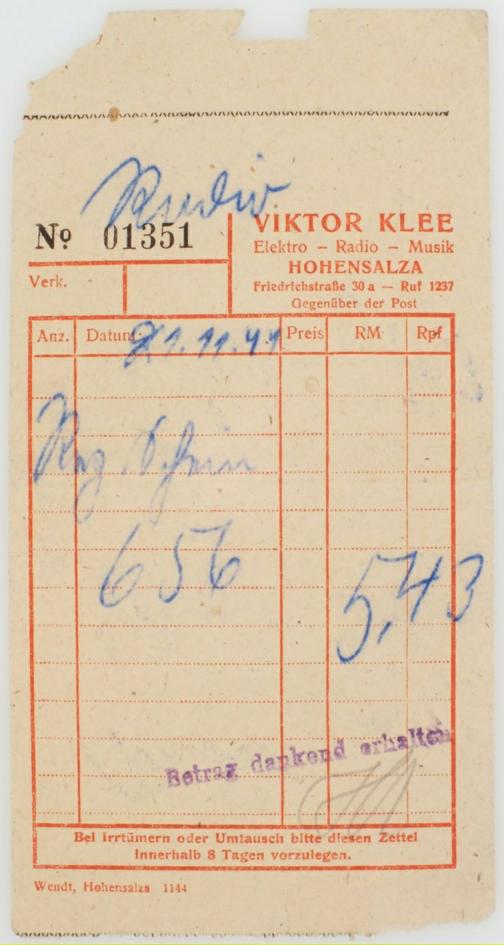 Radio
No 01351
VIKTOR KLEE
Elektro – Radio – Musik
HOHENSALZA
Friedrichstraße 30 a — Ruf 1237
Gegenüber der Post
Verk.
Anz. Datum: 21.11.41 Preis RM Rpf
Schein
656
5,43
Betrag dankend erhalten
Bei Irrtümern oder Umtausch bitte diesen Zettel
innerhalb 8 Tagen vorzulegen.
Wendt, Hohensalza 1144